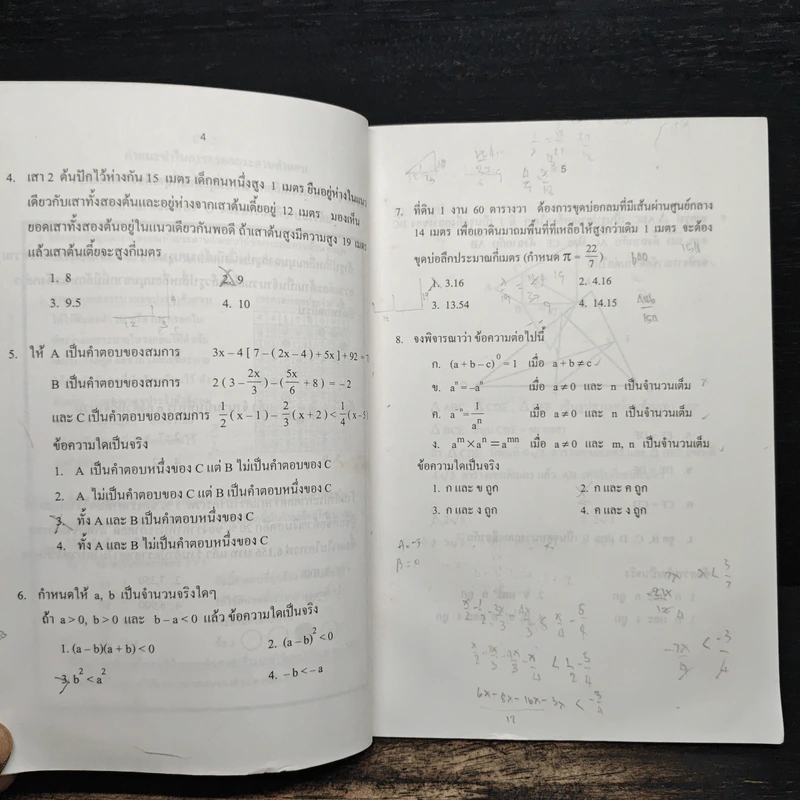 4
4. เสา 2 ต้นปักไว้ห่างกัน 15 เมตร เด็กคนหนึ่งสูง 1 เมตร ยืนอยู่ห่างในแนว
เดียวกับเสาทั้งสองต้นและอยู่ห่างจากเสาต้นเตี้ยอยู่ 12 เมตร มองเห็น
ยอดเสาทั้งสองต้นอยู่ในแนวเดียวกันพอดี ถ้าเสาต้นสูงมีความสูง 19 เมตร
แล้วเสาต้นเตี้ยจะสูงกี่เมตร
1. 8 2. 9
3. 9.5 4. 10
5. ให้ A เป็นคำตอบของสมการ 3x – 4 [ 7 – ( 2x – 4) + 5x ] + 92 =
B เป็นคำตอบของสมการ 2 ( 3 – 2x/3 ) – ( 5x/6 + 8 ) = –2
และ C เป็นคำตอบของอสมการ 1/2 ( x – 1) – 2/3 ( x + 2 ) < 1/4 (x–5)
ข้อความใดเป็นจริง
1. A เป็นคำตอบหนึ่งของ C แต่ B ไม่เป็นคำตอบของ C
2. A ไม่เป็นคำตอบของ C แต่ B เป็นคำตอบหนึ่งของ C
3. ทั้ง A และ B เป็นคำตอบหนึ่งของ C
4. ทั้ง A และ B ไม่เป็นคำตอบของ C
6. กำหนดให้ a, b เป็นจำนวนจริงใดๆ
ถ้า a > 0, b > 0 และ b – a < 0 แล้ว ข้อความใดเป็นจริง
1. (a – b)(a + b) < 0 2. (a – b)² < 0
3. b² < a² 4. – b < – a
5
7. ที่ดิน 1 งาน 60 ตารางวา ต้องการขุดบ่อกลมที่มีเส้นผ่านศูนย์กลาง
14 เมตร เพื่อเอาดินมาถมพื้นที่ที่เหลือให้สูงกว่าเดิม 1 เมตร จะต้อง
ขุดบ่อลึกประมาณกี่เมตร (กำหนด π = 22/7 )
1. 3.16 2. 4.16
3. 13.54 4. 14.15
8. จงพิจารณาว่า ข้อความต่อไปนี้
ก. (a + b – c)⁰ = 1 เมื่อ a + b ≠ c
ข. aⁿ = –aⁿ เมื่อ a ≠ 0 และ n เป็นจำนวนเต็ม
ค. a⁻ⁿ = 1/aⁿ เมื่อ a ≠ 0 และ n เป็นจำนวนเต็ม
ง. aᵐ × aⁿ = aᵐⁿ เมื่อ a ≠ 0 และ m, n เป็นจำนวนเต็ม
ข้อความใดเป็นจริง
1. ก และ ข ถูก 2. ก และ ค ถูก
3. ก และ ง ถูก 4. ค และ ง ถูก
B = 0